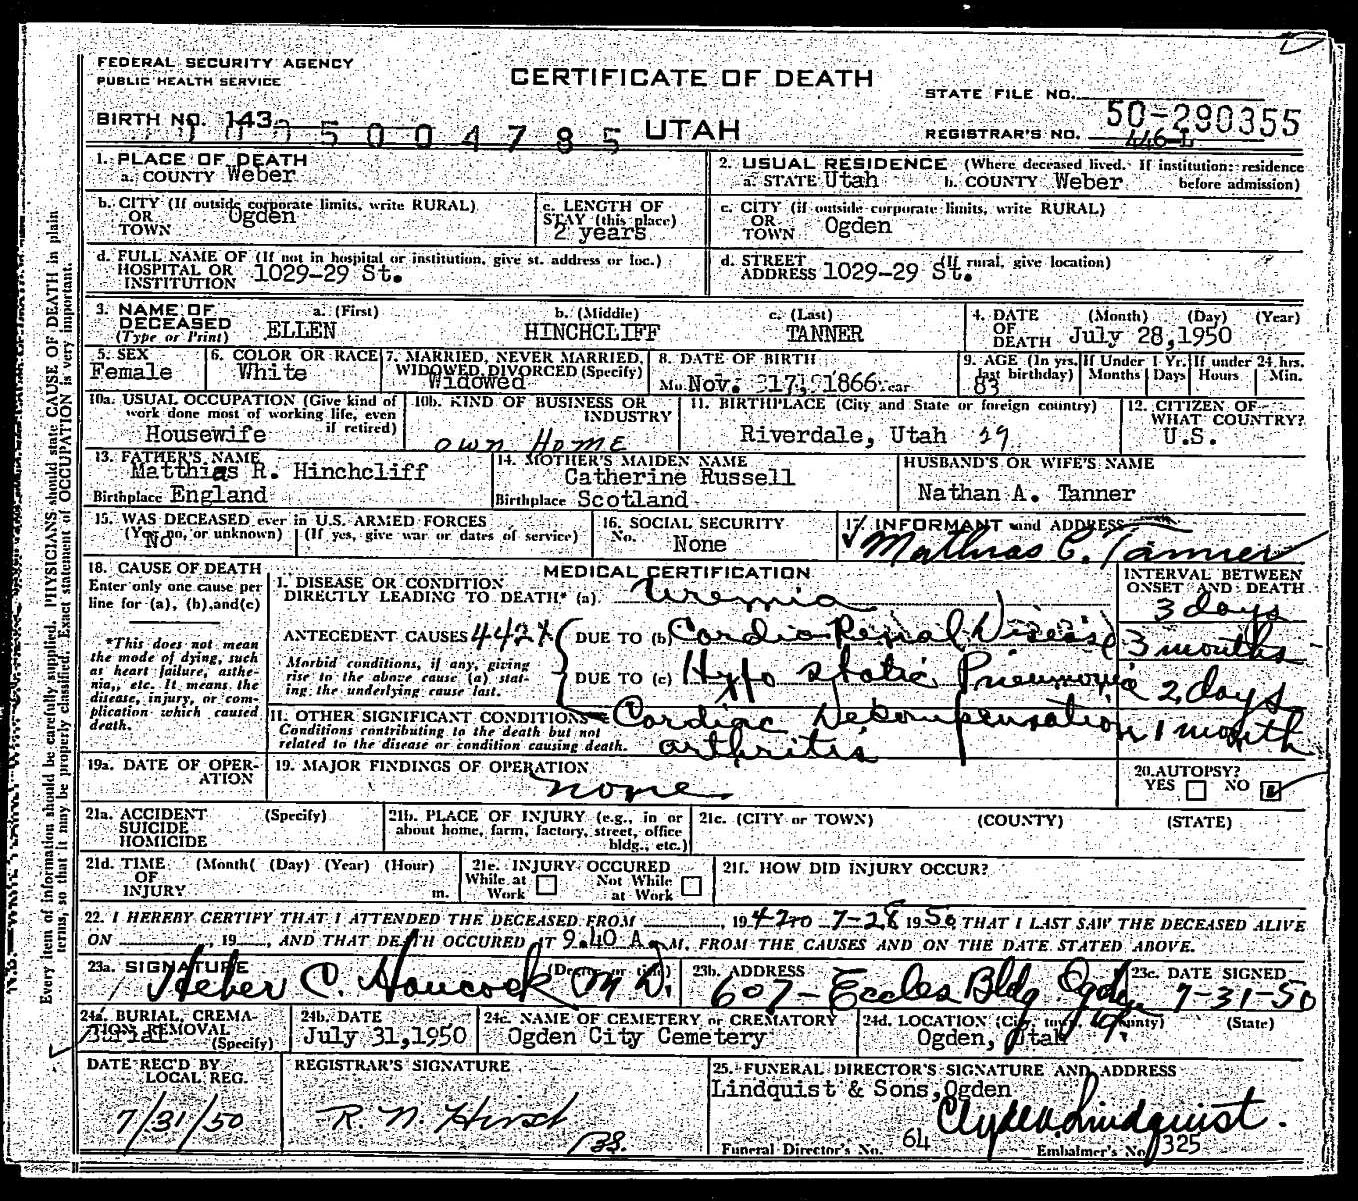 FEDERAL SECURITY AGENCY
PUBLIC HEALTH SERVICE
CERTIFICATE OF DEATH
STATE FILE NO. 50-290355
BIRTH NO. 143
1005004785
UTAH
REGISTRAR'S NO. 446-L
1. PLACE OF DEATH
a. COUNTY Weber
2. USUAL RESIDENCE (Where deceased lived. If institution: residence before admission)
a. STATE Utah b. COUNTY Weber
b. CITY (If outside corporate limits, write RURAL)
OR TOWN Ogden
c. LENGTH OF STAY (this place)
2 years
c. CITY (if outside corporate limits, write RURAL)
OR TOWN Ogden
d. FULL NAME OF (If not in hospital or institution, give st. address or loc.)
HOSPITAL OR INSTITUTION 1029-29 St.
d. STREET ADDRESS (If rural, give location)
1029-29 St.
3. NAME OF DECEASED (Type or Print)
a. (First) b. (Middle) c. (Last)
ELLEN HINCHCLIFF TANNER
4. DATE OF DEATH (Month) (Day) (Year)
July 28,1950
5. SEX
Female
6. COLOR OR RACE
White
7. MARRIED, NEVER MARRIED, WIDOWED, DIVORCED (Specify)
Widowed
8. DATE OF BIRTH
Mo. Nov. 17, 1866 Year
9. AGE (In yrs. last birthday)
83
If Under 1 Yr. Months Days
If under 24 hrs. Hours Min.
10a. USUAL OCCUPATION (Give kind of work done most of working life, even if retired)
Housewife
10b. KIND OF BUSINESS OR INDUSTRY
OWN HOME
11. BIRTHPLACE (City and State or foreign country)
Riverdale, Utah 29
12. CITIZEN OF WHAT COUNTRY?
U.S.
13. FATHER'S NAME
Matthias R. Hinchcliff
Birthplace England
14. MOTHER'S MAIDEN NAME
Catherine Russell
Birthplace Scotland
HUSBAND'S OR WIFE'S NAME
Nathan A. Tanner
15. WAS DECEASED ever in U.S. ARMED FORCES
(Yes, no, or unknown) (If yes, give war or dates of service)
No
16. SOCIAL SECURITY No.
None
17. INFORMANT and ADDRESS
Mathias C. Tanner
18. CAUSE OF DEATH
Enter only one cause per line for (a), (b), and (c)
*This does not mean the mode of dying, such as heart failure, asthenia, etc. It means the disease, injury, or complication which caused death.
MEDICAL CERTIFICATION
INTERVAL BETWEEN ONSET AND DEATH
I. DISEASE OR CONDITION DIRECTLY LEADING TO DEATH* (a) Uremia 3 days
ANTECEDENT CAUSES 442X DUE TO (b) Cardio Renal Disease 3 months
Morbid conditions, if any, giving rise to the above cause (a) stating the underlying cause last.
DUE TO (c) Hypo static Pneumonia 2 days
II. OTHER SIGNIFICANT CONDITIONS Cardiac Decompensation 1 month
Conditions contributing to the death but not related to the disease or condition causing death.
arthritis
19a. DATE OF OPERATION
19. MAJOR FINDINGS OF OPERATION
none
20. AUTOPSY?
YES NO
21a. ACCIDENT SUICIDE HOMICIDE (Specify)
21b. PLACE OF INJURY (e.g., in or about home, farm, factory, street, office bldg., etc.)
21c. (CITY or TOWN) (COUNTY) (STATE)
21d. TIME OF INJURY (Month) (Day) (Year) (Hour) m.
21e. INJURY OCCURED
While at Work Not While at Work
21f. HOW DID INJURY OCCUR?
22. I HEREBY CERTIFY THAT I ATTENDED THE DECEASED FROM 1942 TO 7-28 1950 THAT I LAST SAW THE DECEASED ALIVE
ON , 19 , AND THAT DEATH OCCURED AT 9.40 A.M, FROM THE CAUSES AND ON THE DATE STATED ABOVE.
23a. SIGNATURE (Doctor or title)
Heber C. Hancock M.D.
23b. ADDRESS
607-Eccles Bldg Ogden
23c. DATE SIGNED
7-31-50
24a. BURIAL, CREMATION, REMOVAL (Specify)
Burial
24b. DATE
July 31,1950
24c. NAME OF CEMETERY or CREMATORY
Ogden City Cemetery
24d. LOCATION (City, town, county) (State)
Ogden, Utah
DATE REC'D BY LOCAL REG.
7/31/50
REGISTRAR'S SIGNATURE
R. N. Hirst
25. FUNERAL DIRECTOR'S SIGNATURE AND ADDRESS
Lindquist & Sons, Ogden
Clyde Lindquist.
Funeral Director's No. 64
Embalmer's No. 325
Every item of information should be carefully supplied. PHYSICIANS should state CAUSE OF DEATH in plain
terms, so that it may be properly classified. Exact statement of OCCUPATION is very important.